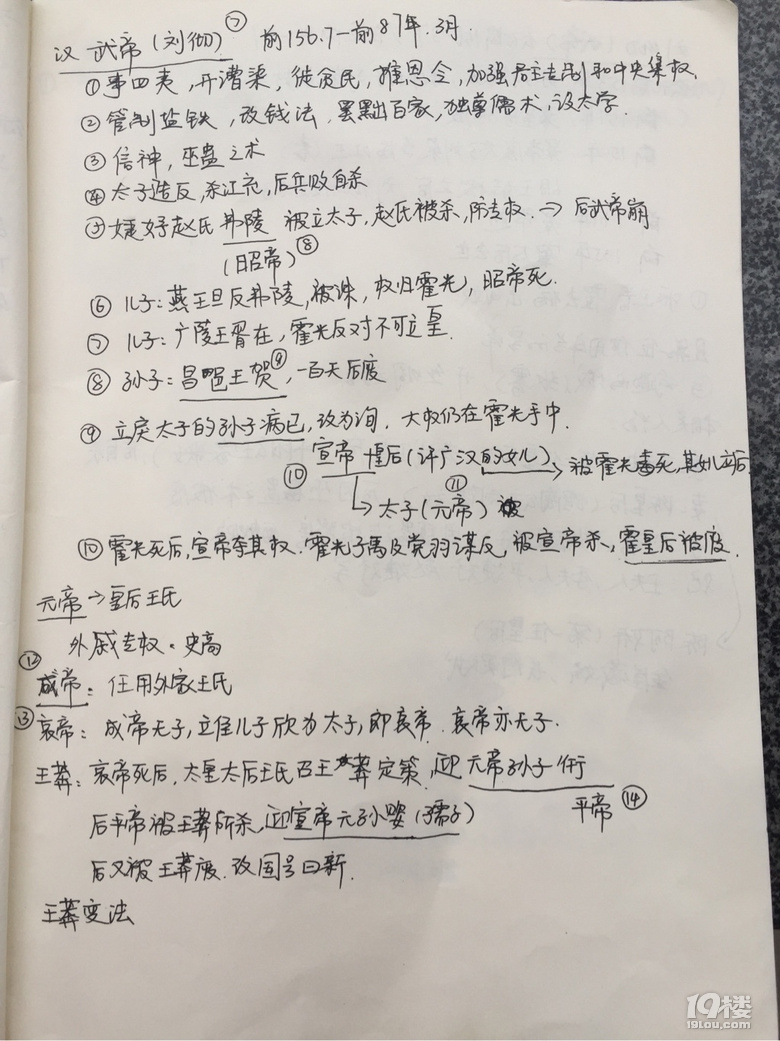 汉 武帝(刘彻)⑦ 前156.7—前87年.3月.
①事四夷,开漕渠,徙贫民,推恩令,加强君主专制和中央集权.
②管制盐铁,改钱法,罢黜百家,独尊儒术,设太学.
③信神,巫蛊之术
④太子造反,杀江充,后兵败自杀
⑤婕妤赵氏 弗陵 被立太子,赵氏被杀,防专权.→后武帝崩
(昭帝)⑧
⑥儿子:燕王旦反弗陵,被诛,权归霍光,昭帝死.
⑦儿子:广陵王胥在,霍光反对不可立皇.
⑧孙子:昌邑王贺⑨,一百天后废
⑨立戾太子的孙子病已,改为询,大权仍在霍光手中.
⑩宣帝 皇后(许广汉的女儿)→被霍光毒死,其女儿立后.
⑪
↳太子(元帝)
⑩霍光死后,宣帝夺其权.霍光子禹及党羽谋反,被宣帝杀,霍皇后被废.
元帝→皇后王氏
外戚专权·史高
⑫
成帝:任用外家王氏
⑬哀帝:成帝无子,立侄儿子欣为太子,即哀帝.哀帝亦无子.
王莽:哀帝死后,太皇太后王氏召王莽定策,迎元帝孙子衎
平帝⑭
后平帝被王莽所杀,迎宣帝元孙婴(孺子)
后又被王莽废.改国号曰新.
王莽变法
19楼
19lou.com